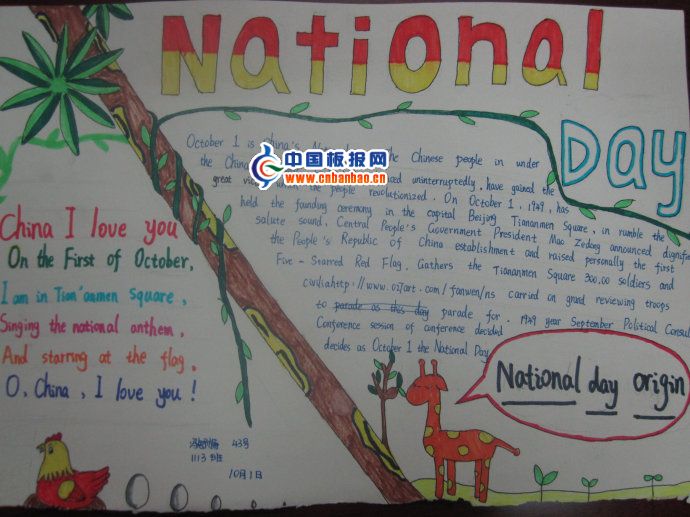 National
Day
October 1 is China's the Chinese people in under
the China uninterruptedly, have gained the
great the people revolutionized. On October 1, 1949, has
held the founding ceremony in the capital Beijing Tiananmen Square, in rumble the
salute sound, Central People's Government President Mao Zedong announced
the People's Republic of China establishment and raised personally the first
Five-Starred Red Flag, Gathers the Tiananmen Square 300.00 soldiers and
carried on grand reviewing troops
to parade as this day parade for. 1949 year September Political
Conference session of conference decided
decides as October 1 the National Day
中国板报网
www.cnbanbao.cn
China I love you
On the First of October,
I am in Tian'anmen Square,
Singing the national anthem,
And starring at the flag,
O, China, I love you!
National day origin
43号
1113班
10月1日